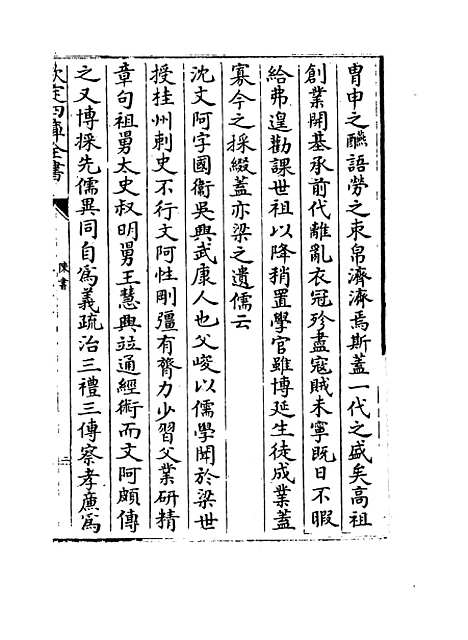 冑申之醼語勞之束帛濟濟焉斯蓋一代之盛矣高祖
創業開基承前代離亂衣冠殄盡寇賊未寧既日不暇
給弗遑勸課世祖以降稍置學官雖博延生徒成業蓋
寡今之採綴蓋亦梁之遺儒云
沈文阿字國衞吳興武康人也父峻以儒學聞於梁世
授桂州刺史不行文阿性剛彊有膂力少習父業研精
章句祖舅太史叔明舅王慧興並通經術而文阿頗傳
之又博採先儒異同自爲義疏治三禮三傳察孝廉爲
欽定四庫全書
陳書